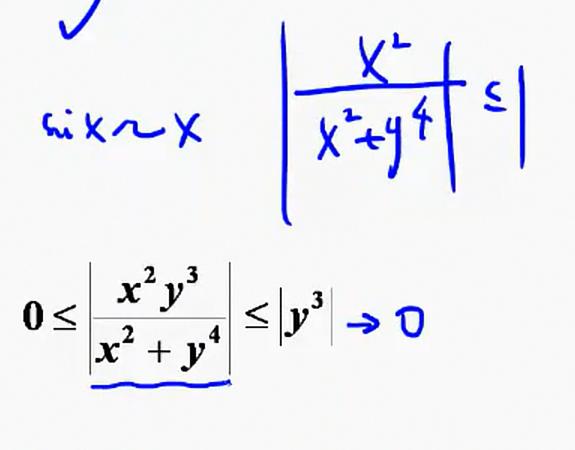 sin x ~ x  | x² / (x² + y⁴) | ≤ 1
0 ≤ | x² y³ / (x² + y⁴) | ≤ | y³ | → 0